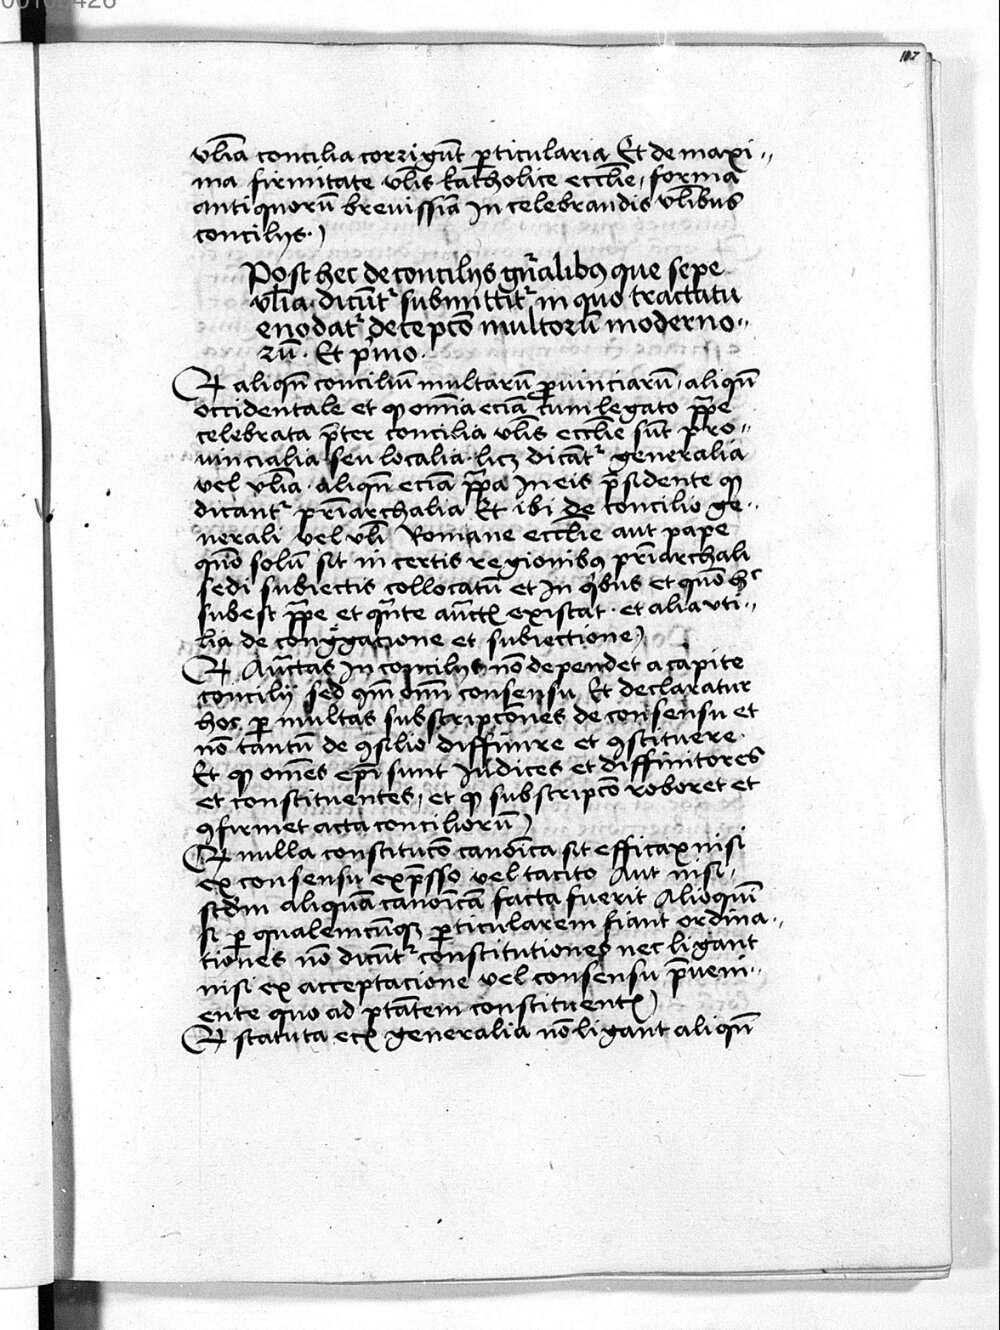 107
vl̅ia concilia corrigu̅t p̱ticularia Et de maxi„
ma firmitate vl̅is katholice eccl̅ie, forma
antiquoru̅ breuissi̅a In celebrandis vl̅ibus
concilijs.)
Post hec de concilijs gn̅alibꝯ que sepe
vl̅ia dicu̅tʳ submittitʳ in quo tractatu
enodatʳ decepco̅ multoru̅ moderno„
ru̅. Et p̅mo.
Qꝫ aliqn̅ conciliu̅ multaru̅ ꝓuinciaru̅, aliqn̅
occidentale et ꝙ om̅ia ecia̅ cum legato pp̅e
celebrata p̅ter concilia vl̅is eccl̅ie su̅t pro„
uincialia seu localia licꝫ dica̅tʳ generalia
vel vl̅ia. aliqn̅ ecia̅ pp̅a In eis p̅sidente ꝙ
dicantʳ pr̅iarchalia Et ibi de concilio ge„
nerali vel vl̅i Romane eccl̅ie aut pape
quo̅ solu̅ sit in certis regionibꝯ pr̅iarchali
sedi subiectis collocatu̅ et In qͥbus et quo̅ hͨ
subest pp̅e et qn̅te au̅ctꝭ existat. et alia vti„
lia de congͣgacione et subiectione)
Qꝫ Au̅ctas In concilijs no̅ dependet a capite
concilij sed qm̅ om̅i consensu Et declaratur
hoc p̱ multas subscripco̅nes de consensu et
no̅ tantu̅ de ꝯsilio diffinire et ꝯstituere.
Et ꝙ om̅es ep̅i sunt Iudices et diffinitores
et constituentes, et ꝙ subscripco̅ roboret et
ꝯfirmet acta concilioru̅)
Qꝫ nulla constituco̅ cano̅ica sit efficax nisi
ex consensu exp̅sso vel tacito Aut nisi„
scd̅m aliqua̅ cano̅ica̅ facta fuerit Alioqui̅
si p̱ qualemcu̅qꝫ p̱ticularem fiant ordina„
tiones no̅ dicu̅tʳ constitutiones nec ligant
nisi ex acceptacione vel consensu p̅ueni„
ente quo ad pt̅atem constituentꝭ)
Qꝫ statuta ecꝭ generalia no̅ ligant aliqn̅